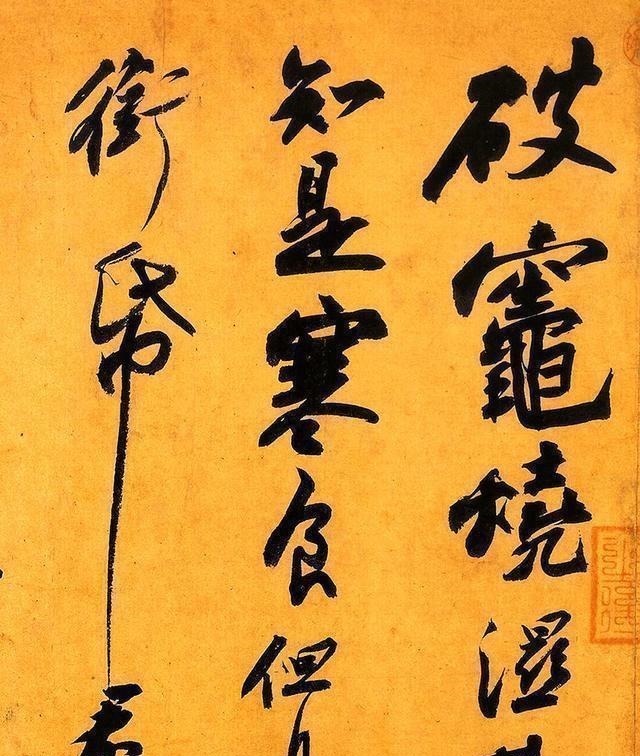 破竈燒濕
知是寒食但
銜帋君